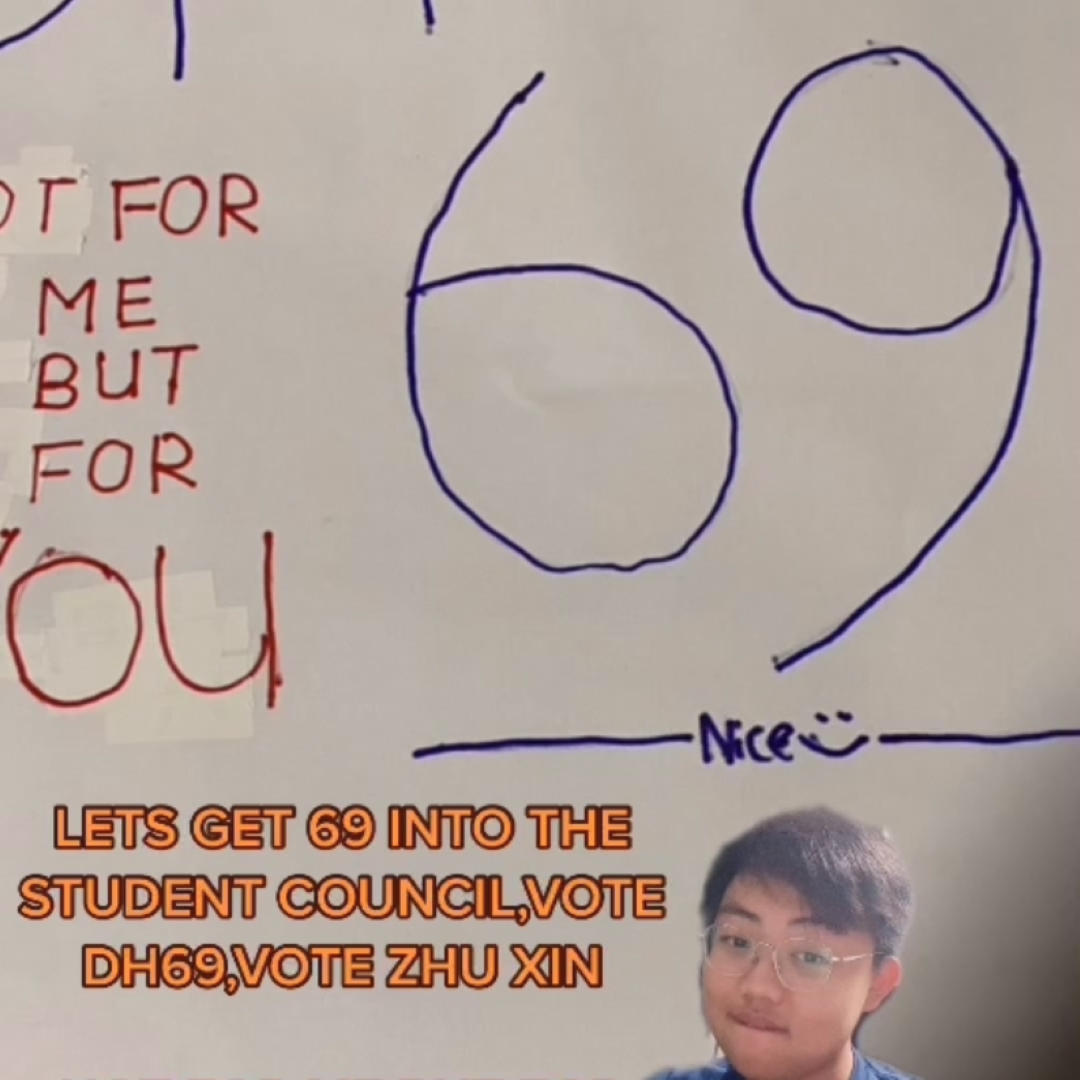 OT FOR
ME
BUT
FOR
YOU
69
Nice
LETS GET 69 INTO THE
STUDENT COUNCIL,VOTE
DH69,VOTE ZHU XIN